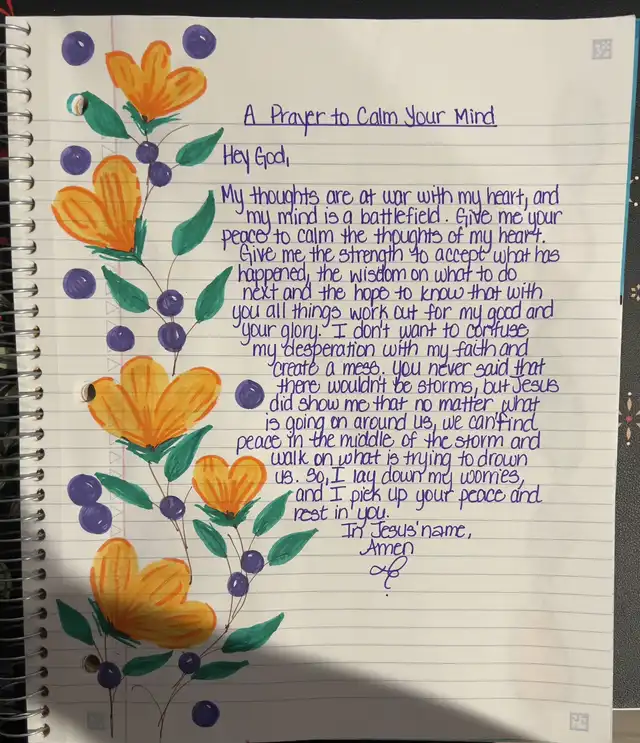 A Prayer to Calm Your Mind
Hey God,
My thoughts are at war with my heart, and
my mind is a battlefield. Give me your
peace to calm the thoughts of my heart.
Give me the strength to accept what has
happened, the wisdom on what to do
next and the hope to know that with
you all things work out for my good and
your glory. I don't want to confuse
my desperation with my faith and
create a mess. You never said that
there wouldn't be storms, but Jesus
did show me that no matter what
is going on around us, we can find
peace in the middle of the storm and
walk on what is trying to drown
us. So, I lay down my worries,
and I pick up your peace and
rest in you.
In Jesus' name,
Amen